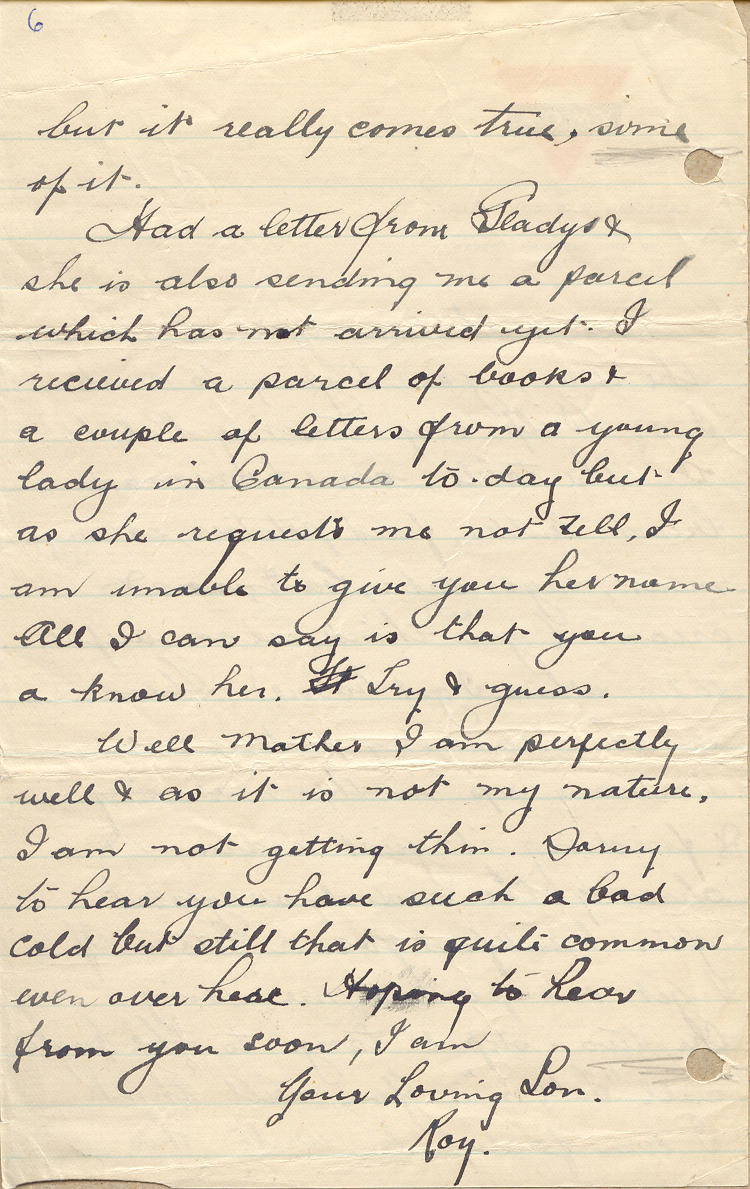 6
but it really comes true, some
of it.
Had a letter from Gladys &
she is also sending me a parcel
which has not arrived yet. I
recieved a parcel of books &
a couple of letters from a young
lady in Canada to-day but
as she requests me not tell, I
am unable to give you her name
All I can say is that you
a know her. It Try & guess.
Well Mother I am perfectly
well & as it is not my nature,
I am not getting thin. Sorry
to hear you have such a bad
cold but still that is quite common
even over here. Hoping to hear
from you soon, I am
Your Loving Son.
Roy.